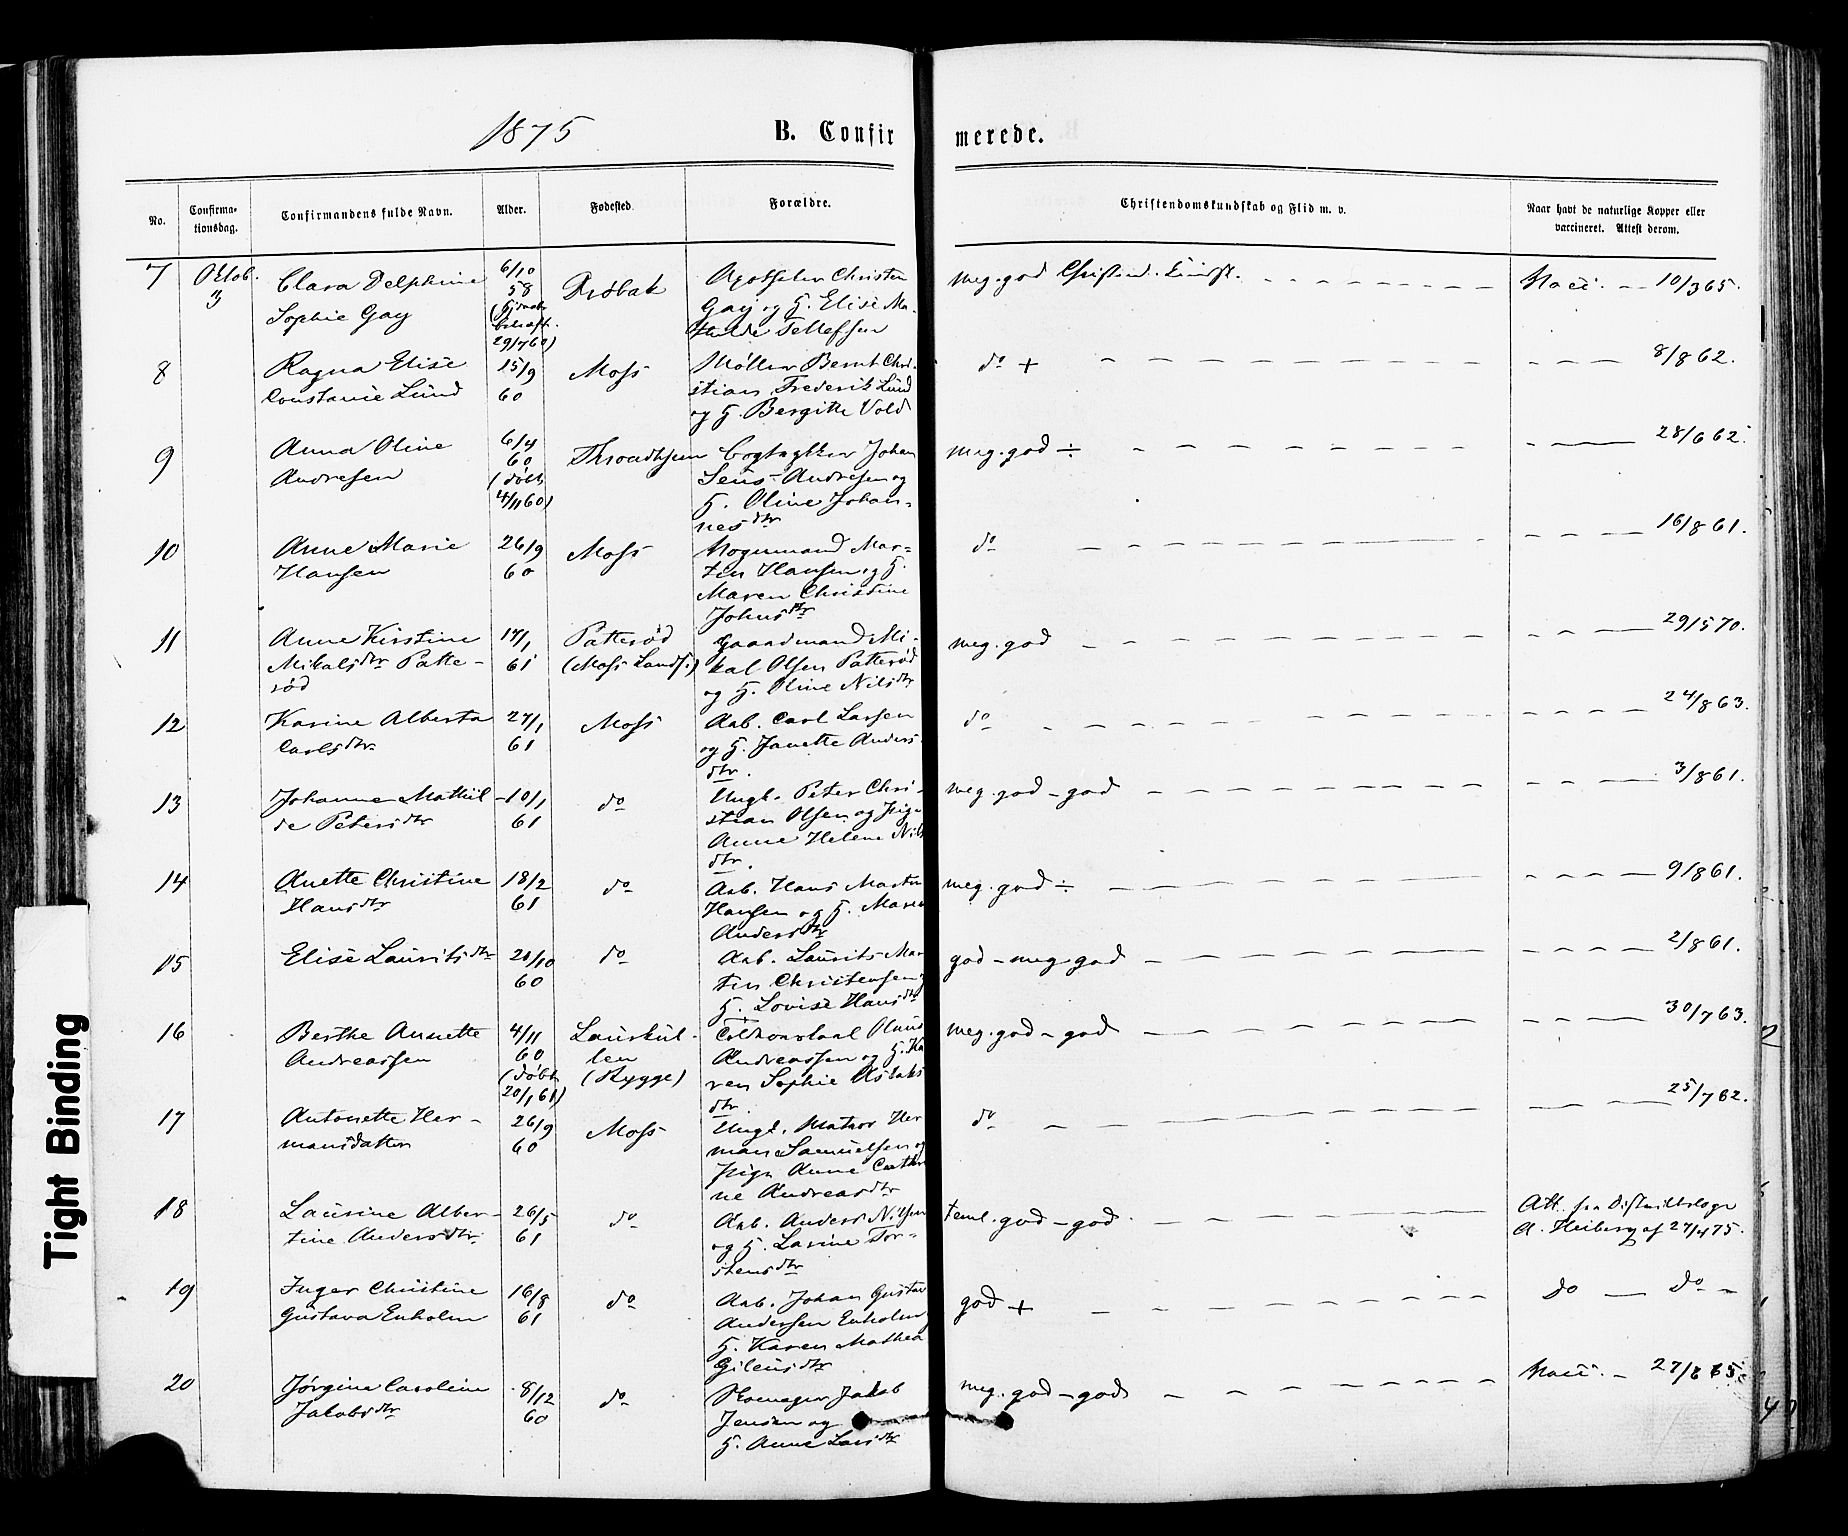 1875
B. Confirmerede.
No.
Confirmationsdag.
Confirmandens fulde Navn.
Alder.
Fødested.
Forældre.
Christendomskundskab og Flid m. v.
Naar havt de naturlige Kopper eller
vaccineret. Attest derom.
7 Oktob. 3
Clara Delphine
Sophie Gay
6/10
58
29/7 60)
Drøbak
Christen
Gay og H. Elise Ma-
thilde Tellefsen
meg. god Christend. Kundsk.
Vacc. 10/3 65.
8
Ragna Elise
Constance Lund
15/9
60
Moss
Møller Bernt Chri-
stian Frederik Lund
og H. Bergitte Vold
do +
8/8 62.
9
Anna Oline
Andresen
6/4
60
(døbt
4/11 60)
Throndhjem
Bogtrykker Johan
Andresen og
H. Oline Johan-
nesdtr
meg. god ÷
28/6 62.
10
Anne Marie
Hansen
26/9
60
Moss
Vognmand Mar-
tin Hansen og H.
Maren Christine
Johnsdtr
do
16/8 61.
11
Anne Kirstine
Mikalsdtr Patte-
rød
17/1
61
Patterød
(Moss Lands.)
Gaardmand Mi-
kal Olsen Patterød
og H. Oline Nilsdtr
meg. god
29/5 70.
12
Karine Alberta
Carlsdtr.
27/1
61
Moss
Arb. Carl Larsen
og H. Janette Anders-
dtr.
do
24/8 63.
13
Johanne Mathil-
de Petersdtr
10/1
61
do
Ungk. Peter Chri-
stian Olsen og Pige
Anne Helene Nils
dtr.
meg. god - god
3/8 61.
14
Anette Christine
Hansdtr
18/2
61
do
Arb. Hans Martin
Hansen og H. Maren
Andersdtr
meg. god ÷
9/8 61.
15
Elise Lauritsdtr
21/10
60
do
Arb. Laurits Mar
tin Christensen
H. Lovise Hansdtr
god - meg god
2/8 61.
16
Berthe Annette
Andreassen
4/11
60
(døbt
20/1 61)
Laurkul-
len
(Rygge)
Andreassen og H. Ka
ren Sophie Aslaks
dtr.
meg. god - god
30/7 63.
17
Antonette Her-
mansdatter
26/9
60
Moss
Ungk. Matros Her
man Samuelsen og
Pige Anne Cathri
ne Andreasdtr
do
25/7 62.
18
Laurine Alber-
tine Andersdtr.
26/5
61
do
Arb. Anders Nilsen
og H. Larine Tor-
stensdtr
teml. god - god.
Att. fra Distriktslæge
A. Heiberg af 27/4 75.
19
Inger Christine
Gustava Enholm
16/8
61
do
Arb. Johan Gustav
Andersen Enholm
H. Karen Mathea
god +
do do
20
Jørgine Caroline
Jakobsdtr
8/12
60
do
Skomager Jakob
Jensen og
H. Anne Larsdtr
meg. god - god
Vacc. 27/6 65.
Tight Binding